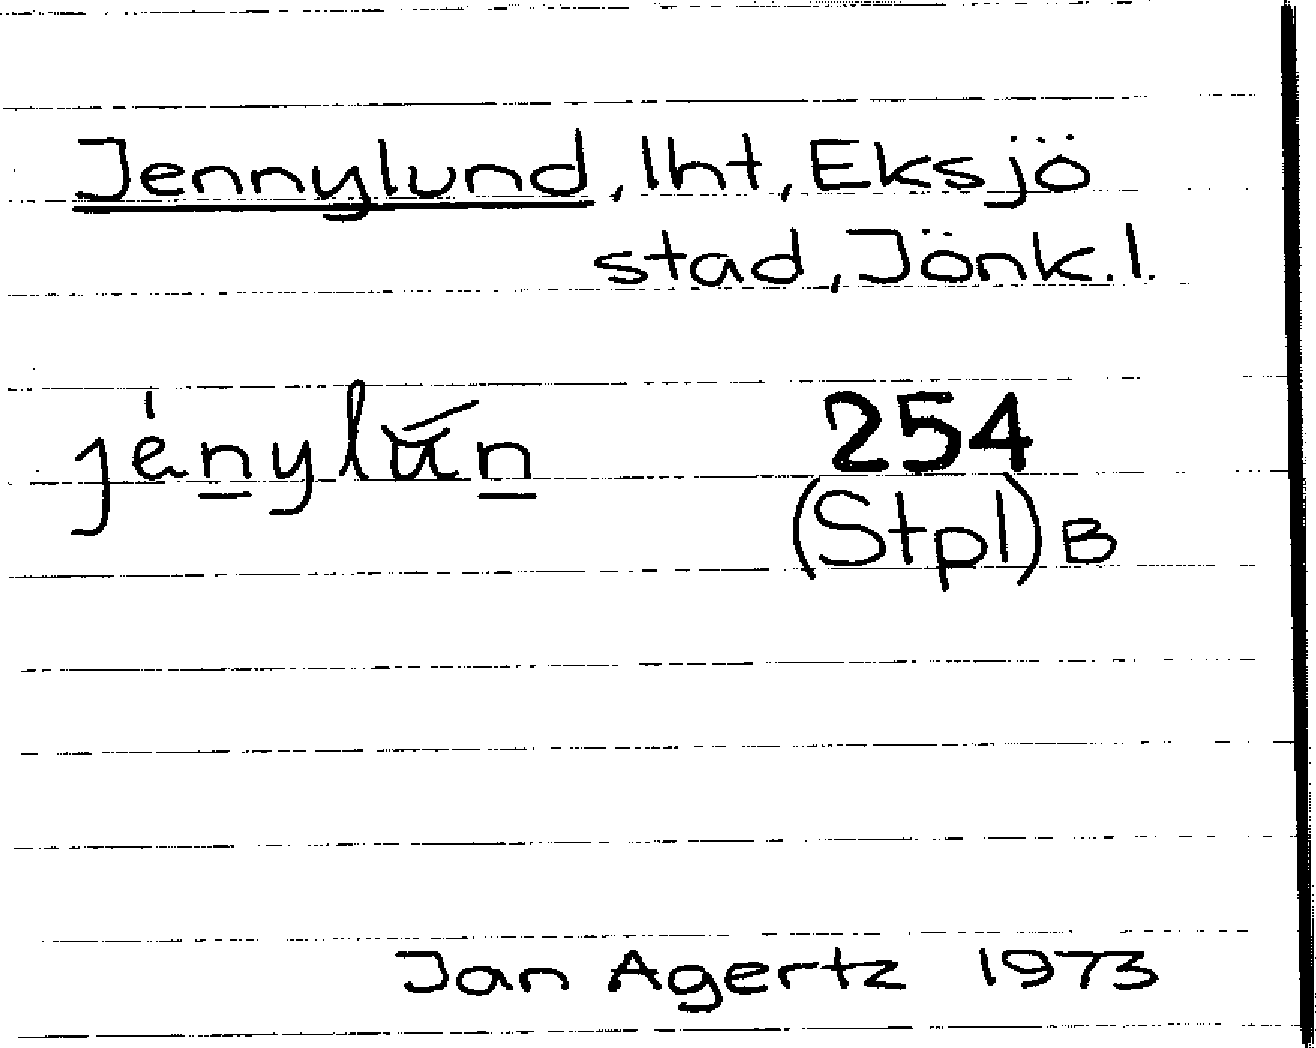 Jennylund, lht, Eksjö
stad, Jönk.l.
jénylún 254
(Stpl) B
Jan Agertz 1973